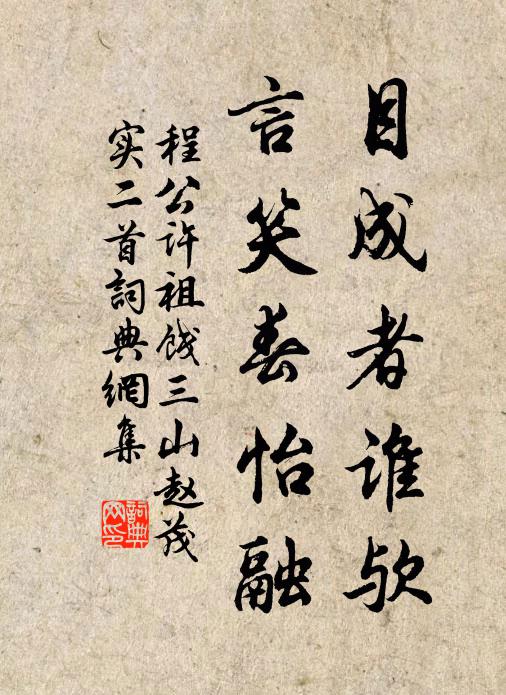 目成者谁欤
言笑春怡融
程公许祖饯三山赵茂
实二首詞典網集
詞典網印